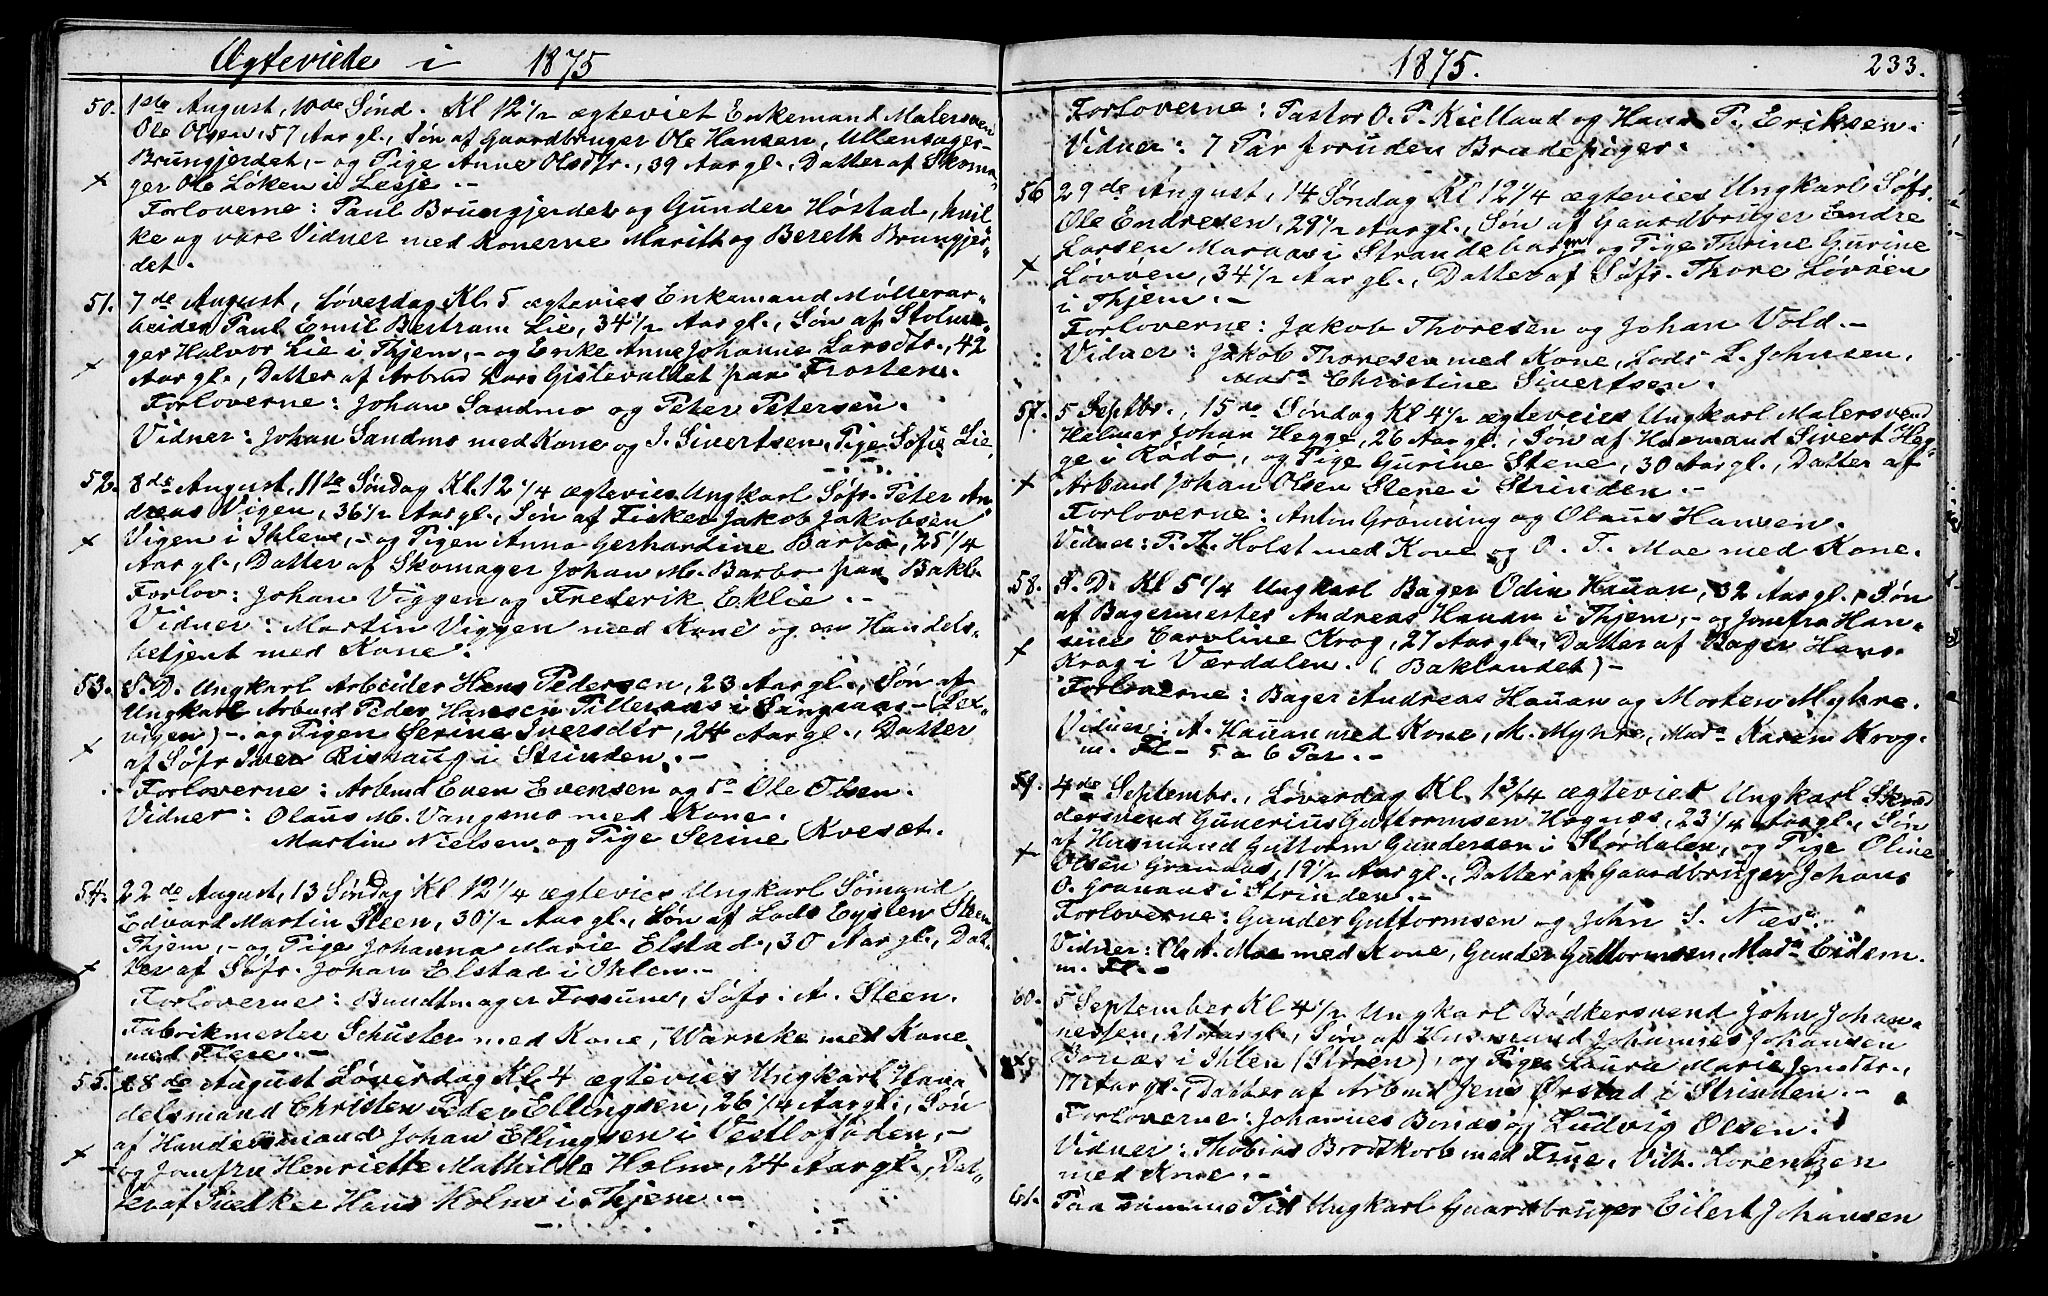 Ægteviede i 1875
50. 1ste August, 10de Sönd. Kl 12 1/2 ægteviet Enkemand Malersven
Ole Olsen, 57 Aar gl., Søn af Gaardbruger Ole Hansen, Ullensager-
Brungjerdet, - og Pige Anne Olsdtr., 39 Aar gl., Datter af Skoma-
ger Ole Løken i Lesje. -
Forloverne: Paul Brungjerdet og Gunder Höstad, hvil
ke og vare Vidner med Konerne Marith og Bereth Brungjer-
det.
51. 7de August, Løverdag Kl. 5 ægtevies Enkemand Møllerar-
beider Paul Emil Bertram Lie, 34 1/2 Aar gl., Søn af Stolma-
ger Halvor Lie i Thjem, - og Enke Anne Johanne Larsdtr., 42
Aar gl., Datter af Arbmd Lars Gistevoldet paa Frosten.
Forloverne: Johan Sandmo og Peter Petersen.
Vidner: Johan Sandmo med Kone og J. Sivertsen, Pige Sofie Lie.
52. 8de August, 11te Søndag Kl. 12 1/4 ægtevies Ungkarl Søfr. Peter An-
dreas Vigen, 36 1/2 Aar gl., Søn af Fisker Jakob Jakobsen
Vigen i Ihlen, - og Pigen Anna Gerhardine Barbo, 25 1/4
Aar gl., Datter af Skomager Johan M. Barbo paa Bakl.
Forlov: Johan Viggen og Frederik Eklie. -
Vidner: Martin Viggen med Kone og en Handels-
betjent med Kone.
53. S. D. Ungkarl Arbeider Hans Pedersen, 23 Aar gl., Søn af
Ungkarl Arbmd Peder Hansen i Singsaas - (Lex-
vigen) - og Pigen Serine Iversdtr, 24 Aar gl., Datter
af Søfr Iver Rishaug i Strinden. -
Forloverne: Arbmd Even Evensen og do Ole Olsen.
Vidner: Olaus M. Vangsmo med Kone.
Martin Nielsen og Pige Serine Kveset.
54. 22de August, 13 Söndag Kl 12 1/4 ægtevies Ungkarl Sømand
Edvart Martin Steen, 30 1/2 Aar gl., Søn af Lods Eysten Steen
Thjem, - og Pige Johanna Marie Elstad, 30 Aar gl., Dat-
ter af Søfr. Johan Elstad i Ihlen. -
Forloverne: Bundtmager Fossune, Søfr. A. Steen.
Fabrikmester Schuster med Kone, Warnke med Kone
med Flere. -
55. 28de August Løverdag Kl. 4 ægtevies Ungkarl Han-
delsmand Christen Peder Ellingsen, 26 1/4 Aar gl., Søn
af Handelsmand Johan Ellingsen i Vestlofoden, -
og Jomfru Henriette Mathilde Holm, 24 Aar gl., Dat-
ter af Snedker Hans Holm i Thjem. -
1875. 233.
Forloverne: Pastor O. P. Kielland og Hans P. Eriksen.
Vidner: 7 Par foruden Brudepiger.
56 29de August, 14 Søndag Kl 12 1/4 ægtevies Ungkarl Søfr.
Ole Endresen, 29 1/2 Aar gl., Søn af Gaardbruger Endre
Larsen Maraas i Strandebarm og Pige Thrine Gurine
Løvöen, 34 1/2 Aar gl., Datter af Søfr. Thore Løvöen
i Thjem. -
Forloverne: Jakob Thoresen og Johan Vold. -
Vidner: Jakob Thoresen med Kone, Lods L. Johnsen,
Mada Christine Sivertsen.
57. 5 Septbr., 15de Søndag Kl 4 1/2 ægtevies Ungkarl Malersvend
Hilmer Johan Hegge, 26 Aar gl., Søn af Husmand Sivert Heg-
ge i Rödö, og Pige Gurine Stene, 30 Aar gl., Datter af
Arbmd Johan Olsen Stene i Strinden. -
Forloverne: Anton Grønning og Olaus Hansen.
Vidner: P. A. Holst med Kone og O. T. Moe med Kone.
58. S. D. Kl 5 1/4 Ungkarl Bager Odin Hauan, 32 Aar gl., Søn
af Bagermester Andreas Hauan i Thjem, - og Jomfru Han-
sine Caroline Krog, 27 Aar gl., Datter af Bager Hans
Krog i Værdalen. (Baklandet) -
Forloverne: Bager Andreas Hauan og Morten Myhre.
Vidner: A. Hauan med Kone, M. Myhre, Mada Karen Krog
m. Fl - 5 a 6 Par. -
59. 4de Septembr., Løverdag Kl. 1 3/4 ægteviet Ungkarl Skræd
dersvend Gunerius Guttormsen Hognæs, 23 1/4 Aar gl., Søn
af Husmand Guttorm Gundersen i Stördalen, og Pige Oline
Olsen Granaas, 19 1/2 Aar gl., Datter af Gaardbruger Johans
O. Granaas i Strinden. -
Forloverne: Gunder Guttormsen og John S. Næss.
Vidner: Ole A. Moe med Kone, Gunder Guttormsen, Mada Eidem
m. Fl. -
60. 5 September Kl 4 1/2 Ungkarl Bødkersvend John Johan-
nessen, 21 Aar gl., Søn af Husmand Johannes Johansen
Bonæs i Ihlen, og Pige Laura Marie Jensdtr.,
17 Aar gl., Datter af Arbmd Jens Ørstad i Strinden. -
Forloverne: Johannes Bonæs og Ludvig Olsen.
Vidner: Thobias Brodtkorb med Frue, Vilh. Lorentzen
med Kone. -
61. Paa samme Tid Ungkarl Gaardbruger Eilert Johansen